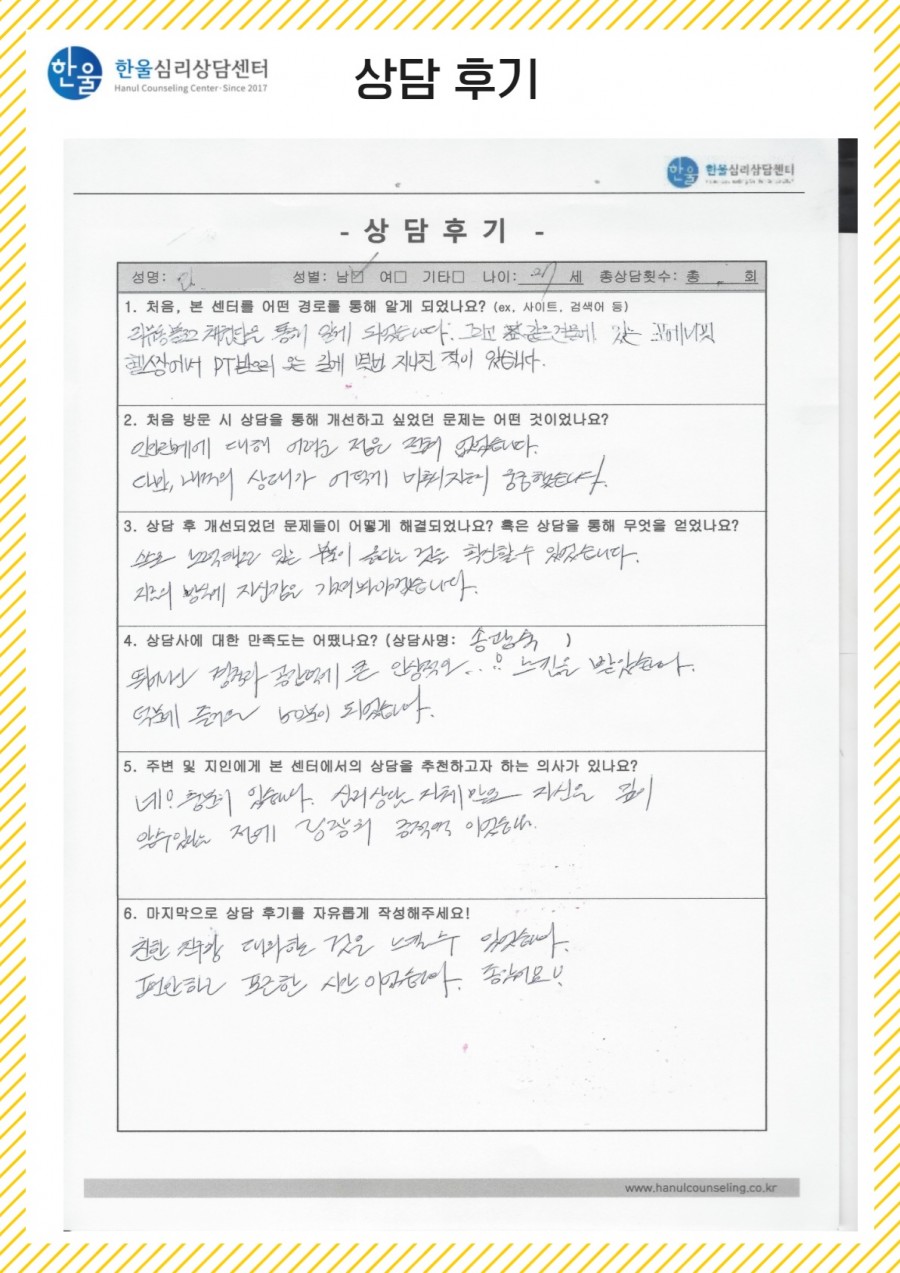 한울
한울심리상담센터
Hanul Counseling Center · Since 2017
상담 후기
한울
한울심리상담센터
- 상 담 후 기 -
성명: 성별: 남☑ 여□ 기타□ 나이: 세 총상담횟수: 총 회
1. 처음, 본 센터를 어떤 경로를 통해 알게 되었나요? (ex, 사이트, 검색어 등)
통해 알게 되었습니다. 그리고 같은건물에 있는
헬스장에서 PT받으러 오는 길에 몇번 지나친 적이 있습니다.
2. 처음 방문 시 상담을 통해 개선하고 싶었던 문제는 어떤 것이었나요?
대해 어려운 점은 전혀 없었습니다.
다만, 내면의 상태가 어떻게 궁금했습니다.
3. 상담 후 개선되었던 문제들이 어떻게 해결되었나요? 혹은 상담을 통해 무엇을 얻었나요?
스스로 노력해온 있는 옳다는 것을 확신할 수 있었습니다.
지금의 방식에 자신감을 가져봐야겠습니다.
4. 상담사에 대한 만족도는 어땠나요? (상담사명: )
뛰어난 경청과 공감력에 큰 인상적인 느낌을 받았습니다.
덕분에 즐거운 되었습니다.
5. 주변 및 지인에게 본 센터에서의 상담을 추천하고자 하는 의사가 있나요?
네! 충분히 있습니다. 심리상담 자체만으로 자신을 깊이
알수있다는 점에 굉장히 이었습니다.
6. 마지막으로 상담 후기를 자유롭게 작성해주세요!
친한 친구랑 대화하는 것을 느낄수 있었습니다.
편안하고 포근한 시간이었습니다. 좋았어요!
www.hanulcounseling.co.kr